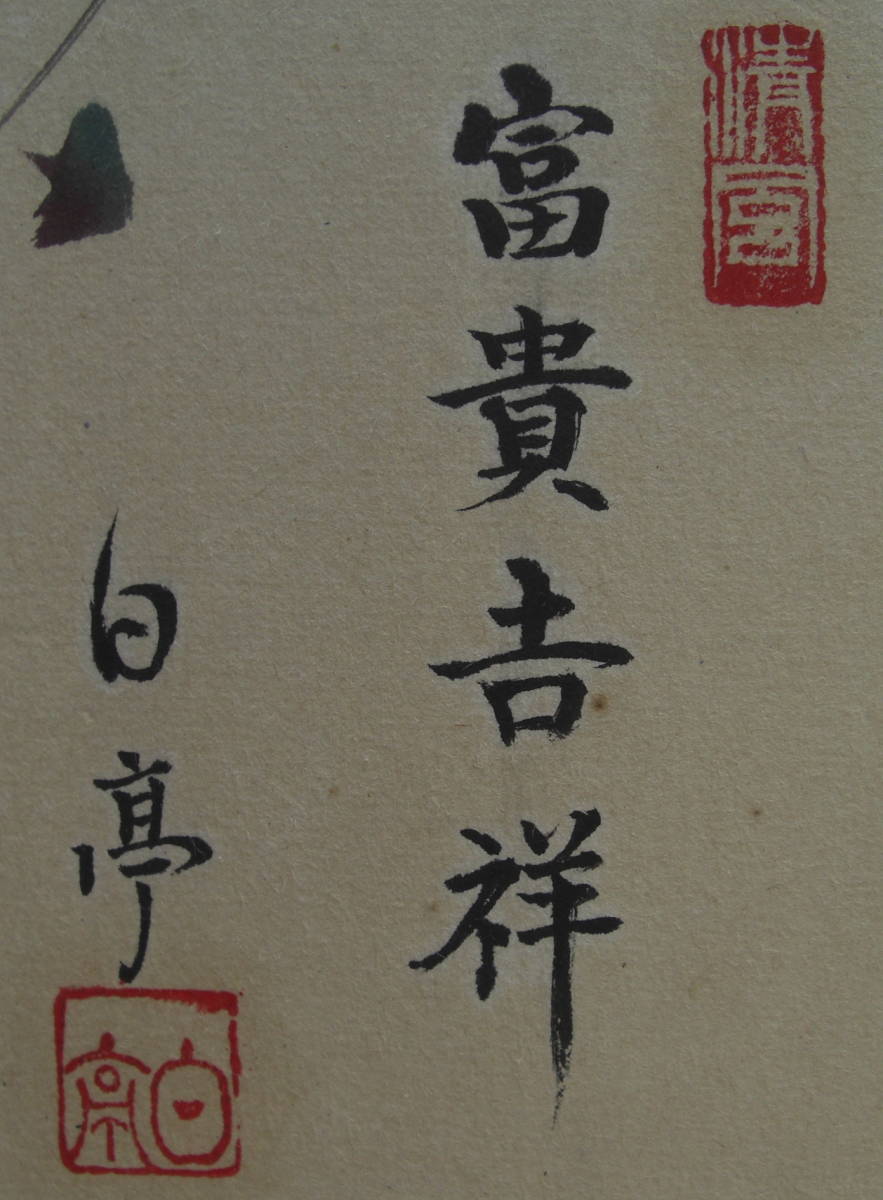 富貴吉祥
白亭
白亭